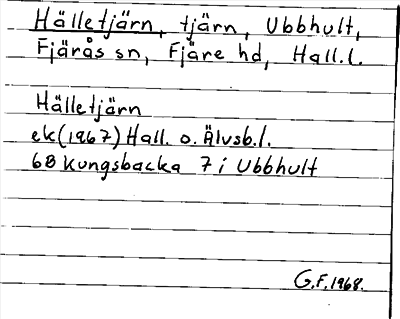 Hälletjärn, tjärn, Ubbhult,
Fjärås sn, Fjäre hd, Hall.l.
Hälletjärn
ek(1967) Hall. o. Älvsb.l.
6B Kungsbacka 7 i Ubbhult
G.F. 1968.